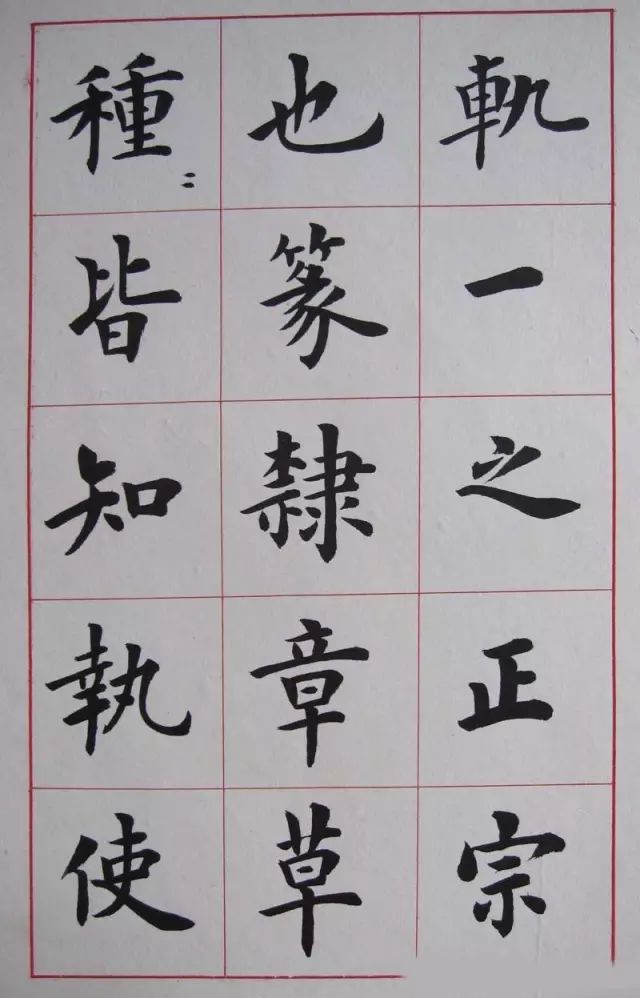 軌一之正宗
也篆隸章草
種〻皆知執使